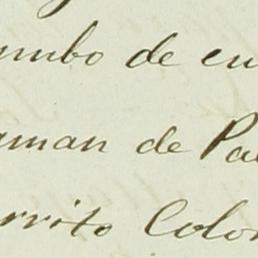 umbo de cu
aman de Pa
rrito Colon